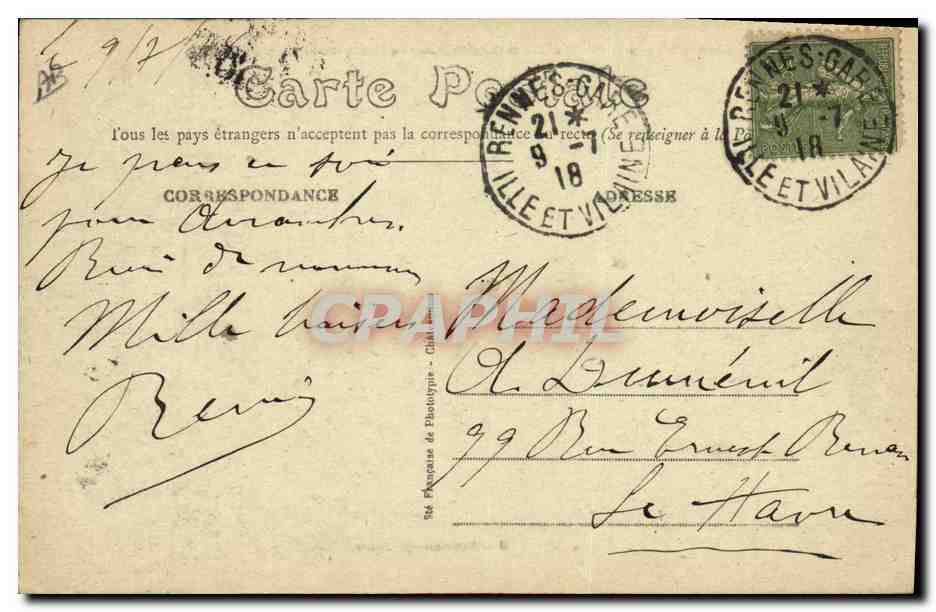 9/7/18
AB
Carte Postale
Tous les pays étrangers n'acceptent pas la correspondance au recto (Se renseigner à la Po
CORRESPONDANCE
ADRESSE
RENNES-GARE
21*
9 -7
18
ILLE ET VILAINE
RENNES-GARE
21*
9 -7
18
ILLE ET VILAINE
Je pars ce soir
pour
Rien de nouveau
Mille baisers
René
CPAPHIL
Sté Française de Phototypie - Châ
Mademoiselle
A. Duménil
99 Rue Ernest Renan
Le Havre